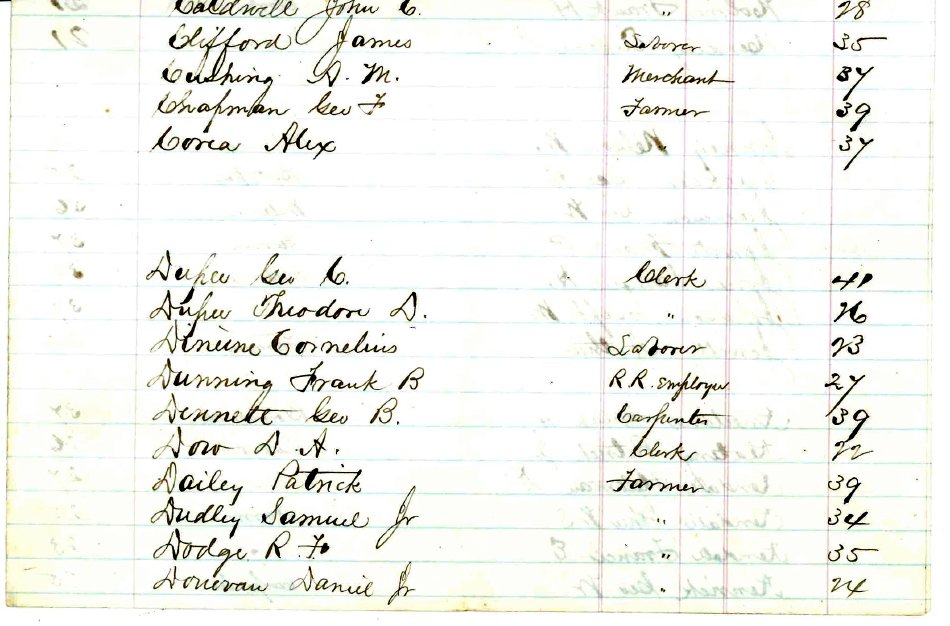 Caldwell John C. " 28
Clifford James Laborer 35
Cushing A. M. Merchant 37
Chapman Geo F Farmer 39
Corea Alex " 37
Dupee Geo C. Clerk 41
Dupee Theodore D. " 26
Dineine Cornelius Laborer 23
Dunning Frank B R R. Employee 27
Dennett Geo B. Carpenter 39
Dow D. A. Clerk 22
Dailey Patrick Farmer 39
Dudley Samuel Jr " 34
Dodge R. F. " 35
Donevan Daniel Jr " 24